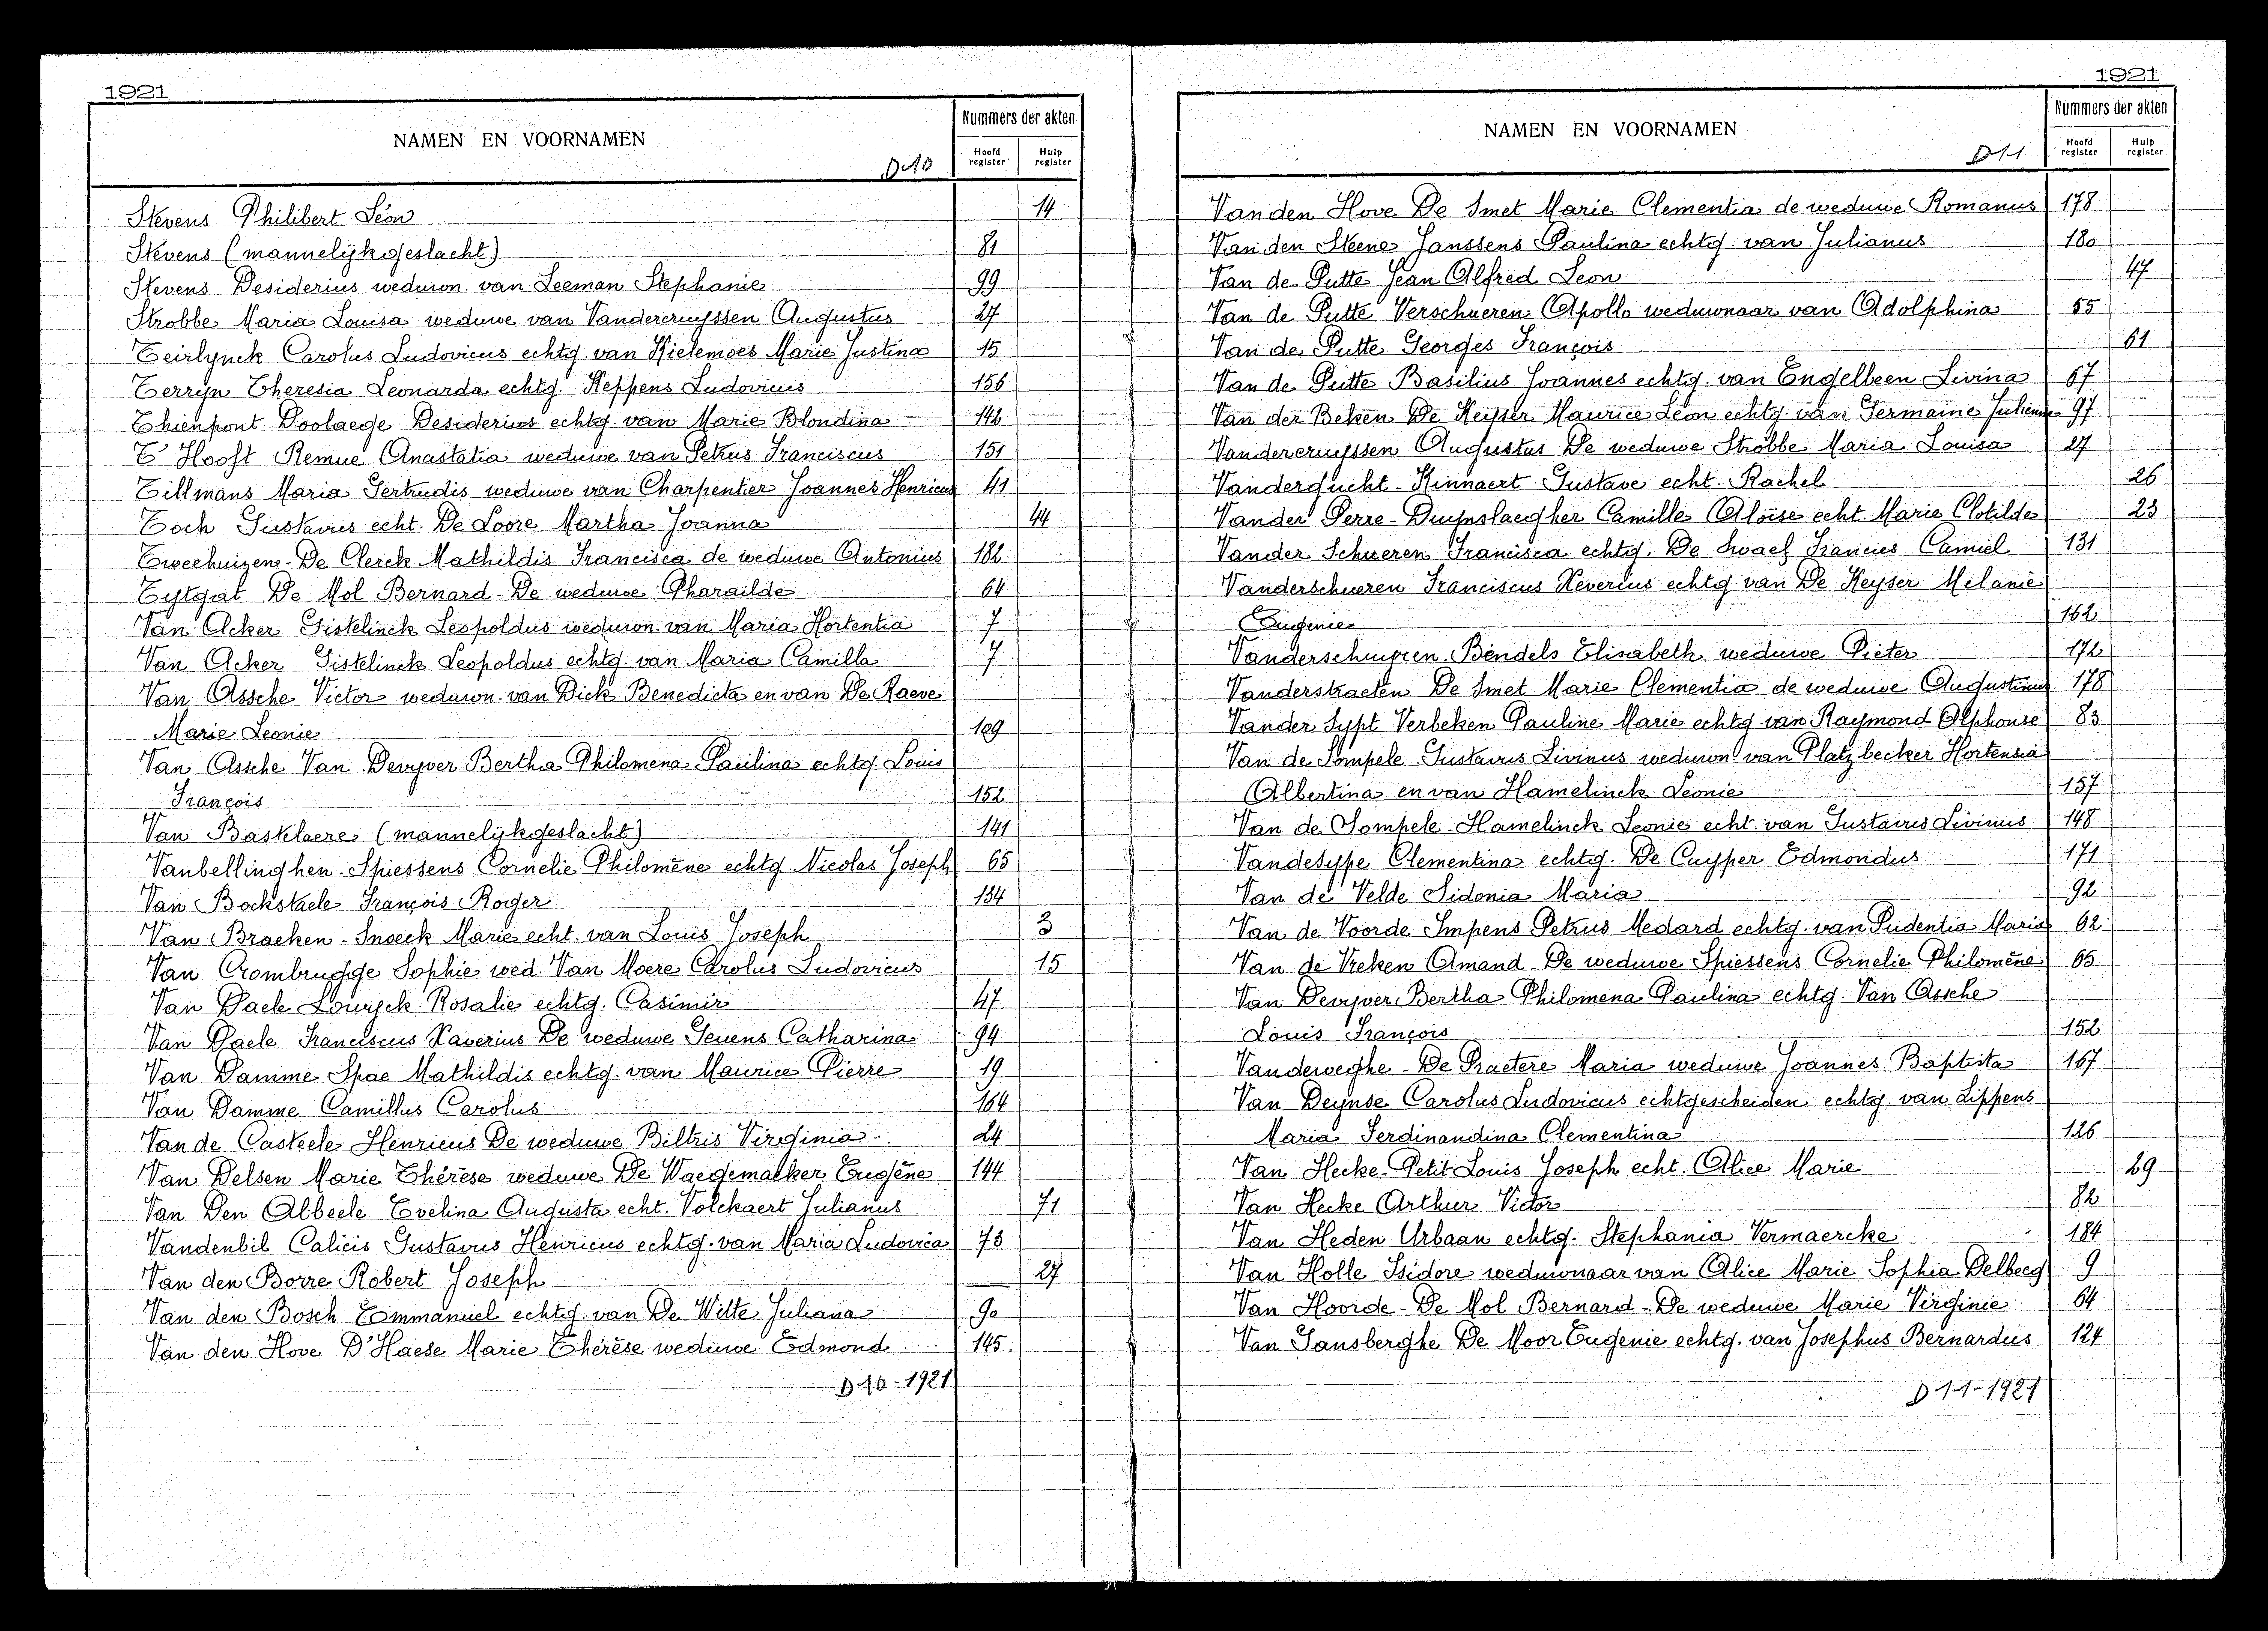 1921
NAMEN EN VOORNAMEN
Nummers der akten
Hoofd register
Hulp register
D10
Stevens Philibert Léon 14
Stevens (mannelijk geslacht) 81
Stevens Desiderius weduwn. van Leeman Stephanie 99
Strobbe Maria Louisa weduwe van Vandercruyssen Augustus 27
Teirlynck Carolus Ludovicus echtg. van Kielemoes Marie Justina 15
Terryn Theresia Leonarda echtg. Reppens Ludovicus 156
Thienpont Doolaege Desiderius echtg. van Marie Blondina 142
T'Hooft Remue Anastatia weduwe van Petrus Franciscus 151
Tillmans Maria Gertrudis weduwe van Charpentier Joannes Henricus 41
Toch Gustavus echt. De Loore Martha Joanna 44
Tweehuizen-De Clerck Mathildis Francisca de weduwe Antonius 182
Tytgat De Mol Bernard-De weduwe Pharaïlde 64
Van Acker Gistelinck Leopoldus weduwn. van Maria Hortentia 7
Van Acker Gistelinck Leopoldus echtg. van Maria Camilla 7
Van Assche Victor weduwn. van Dick Benedicta en van De Raeve
Marie Leonie 109
Van Assche Van Devyver Bertha Philomena Paulina echtg. Louis
François 152
Van Bastelaere (mannelijk geslacht) 141
Vanbellinghen-Spiessens Cornelie Philomène echtg. Nicolas Joseph 65
Van Bockstaele François Roger 134
Van Bracken-Snoeck Marie echt. van Louis Joseph 3
Van Crombrugge Sophie wed. Van Moere Carolus Ludovicus 15
Van Daele Louryck Rosalie echtg. Casimir 47
Van Daele Franciscus Xaverius De weduwe Gevens Catharina 94
Van Damme Spae Mathildis echtg. van Maurice Pierre 19
Van Damme Camillus Carolus 164
Van de Casteele Henricus De weduwe Biltris Virginia 24
Van Delsen Marie Thérèse weduwe De Waegemaeker Eugène 144
Van Den Abbeele Evelina Augusta echt. Volckaert Julianus 71
Vandenbil Calicis Gustavus Henricus echtg. van Maria Ludovica 73
Van den Borre Robert Joseph 27
Van den Bosch Emmanuel echtg. van De Witte Juliana 90
Van den Hove D'Haese Marie Thérèse weduwe Edmond 145
D10-1921
1921
NAMEN EN VOORNAMEN
Nummers der akten
Hoofd register
Hulp register
D11
Van den Hove De Smet Marie Clementia de weduwe Romanus 178
Van den Steene Janssens Paulina echtg. van Julianus 180
Van de Putte Jean Alfred Leon 47
Van de Putte Verschueren Apollo weduwnaar van Adolphina 55
Van de Putte Georges François 61
Van de Putte Basilius Joannes echtg. van Engelbeen Livina 67
Van der Beken De Keyser Maurice Léon echtg. van Germaine Julienne 97
Vandercruyssen Augustus De weduwe Strobbe Maria Louisa 27
Vandergucht-Kinnaert Gustave echt. Rachel 26
Vander Perre-Duynslaegher Camille Aloïse echt. Marie Clotilde 23
Vander Schueren Francisca echtg. De Swaef Francies Camiel 131
Vanderschueren Franciscus Xeverius echtg. van De Keyser Melanie
Eugenie 162
Vanderschuyren Bendels Elisabeth weduwe Pieter 172
Vanderstraeten De Smet Marie Clementia de weduwe Augustinus 178
Vander Sypt Verbeken Pauline Marie echtg. van Raymond Alphonse 83
Van de Sompele Gustavus Livinus weduwn. van Platzbecker Hortensia
Albertina en van Hamelinck Leonie 157
Van de Sompele-Hamelinck Leonie echt. van Gustavus Livinus 148
Vandesype Clementina echtg. De Cuyper Edmondus 171
Van de Velde Sidonia Maria 92
Van de Voorde Impens Petrus Medard echtg. van Pudentia Maria 62
Van de Vreken Amand-De weduwe Spiessens Cornelie Philomène 65
Van Devyver Bertha Philomena Paulina echtg. Van Assche
Louis François 152
Vanderweghe-De Praetere Maria weduwe Joannes Baptista 167
Van Deynse Carolus Ludovicus echtgescheiden echtg. van Lippens
Maria Ferdinandina Clementina 126
Van Hecke-Petit Louis Joseph echt. Alice Marie 29
Van Hecke Arthur Victor 82
Van Heden Urbaan echtg. Stephania Vermaercke 184
Van Holle Isidore weduwnaar van Alice Marie Sophia Delbecq 9
Van Hoorde-De Mol Bernard-De weduwe Marie Virginie 64
Van Jansberghe De Moor Eugenie echtg. van Josephus Bernardus 124
D11-1921